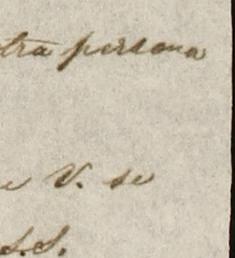 tra persona
e V. se
S.S.